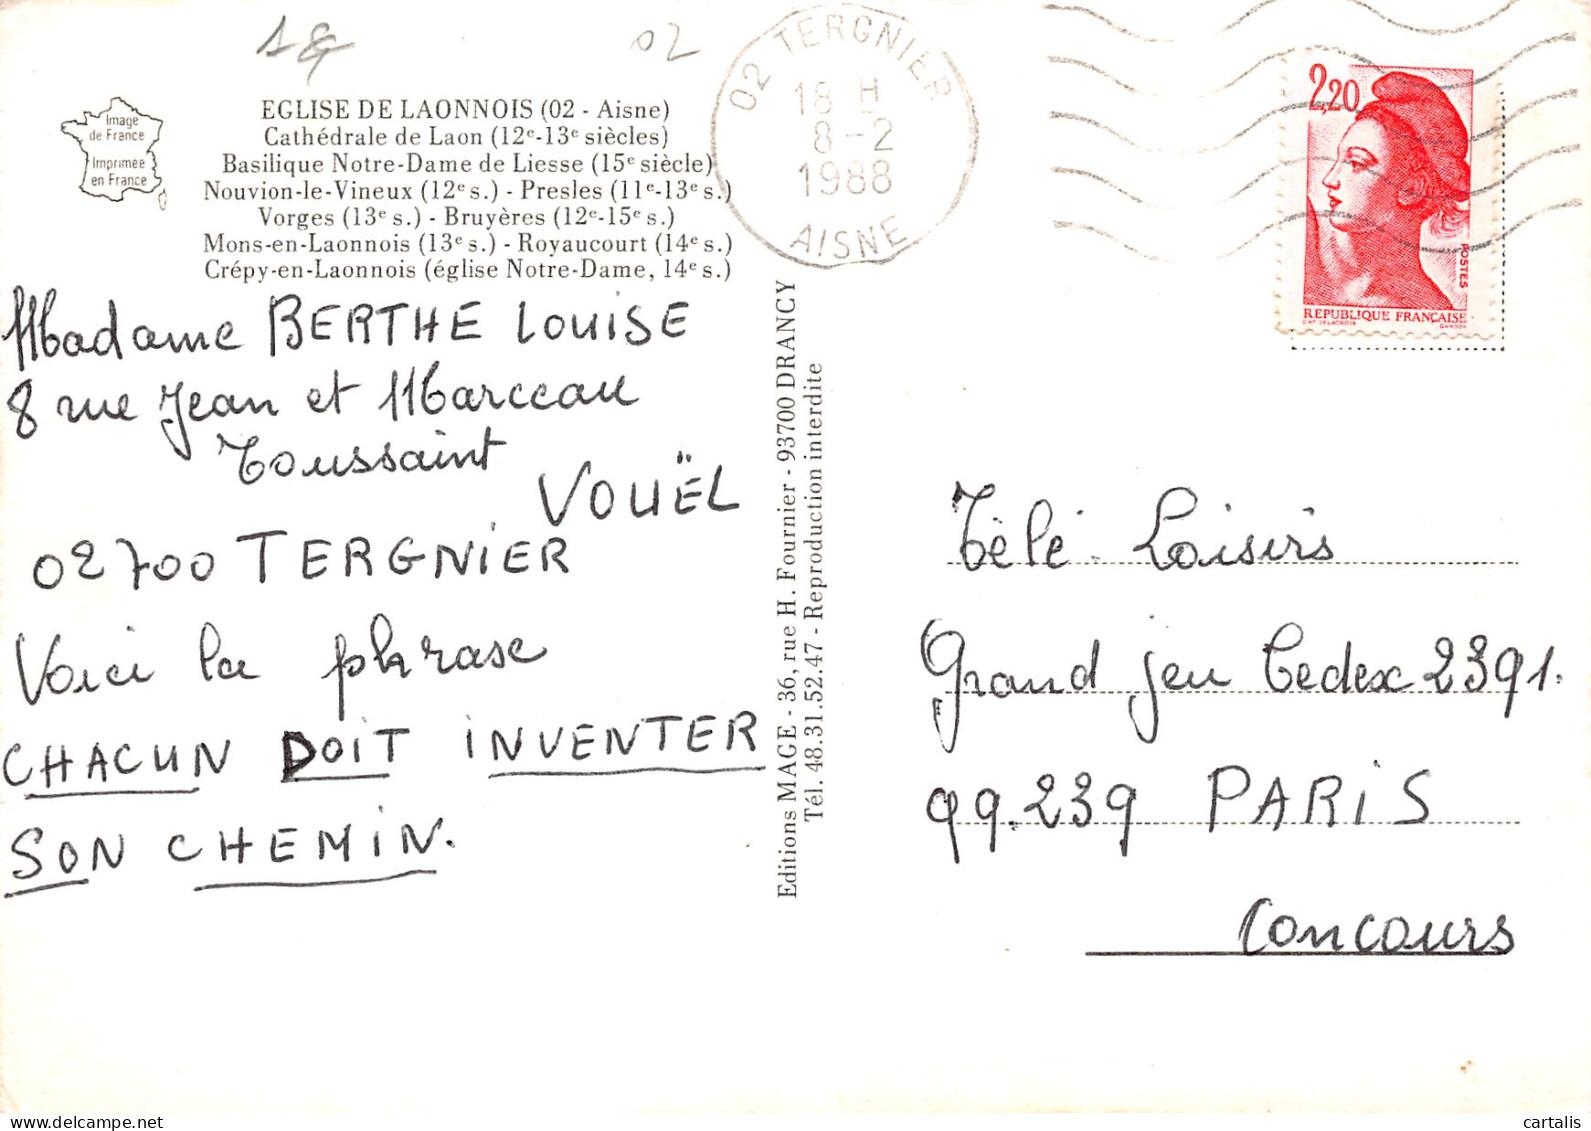 18
02
Image
de France
Imprimée
en France
EGLISE DE LAONNOIS (02 - Aisne)
Cathédrale de Laon (12e-13e siècles)
Basilique Notre-Dame de Liesse (15e siècle)
Nouvion-le-Vineux (12e s.) - Presles (11e-13e s.)
Vorges (13e s.) - Bruyères (12e-15e s.)
Mons-en-Laonnois (13e s.) - Royaucourt (14e s.)
Crépy-en-Laonnois (église Notre-Dame, 14e s.)
02 TERGNIER
18 H
8-2
1988
AISNE
2,20
POSTES
REPUBLIQUE FRANÇAISE
GANDON
Madame BERTHE LOUISE
8 rue Jean et Marceau
Toussaint
VOUËL
02700 TERGNIER
Voici la phrase
CHACUN DOIT INVENTER
SON CHEMIN.
Editions MAGE - 36, rue H. Fournier - 93700 DRANCY
Tél. 48.31.52.47 - Reproduction interdite
Télé. Loisirs
Grand jeu Cedex 2391.
99.239 PARIS
Concours
cartalis